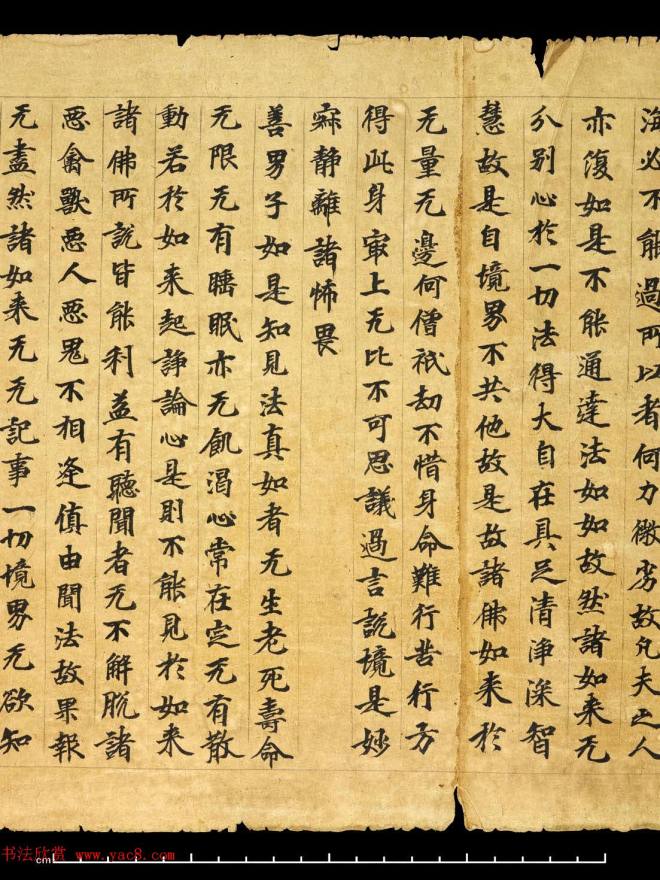 海必不能過所以者何力微劣故凡夫之人
亦復如是不能通達法如如故然諸如来无
分别心於一切法得大自在具足清淨深智
慧故是自境界不共他故是故諸佛如来於
无量无邊阿僧祇劫不惜身命難行苦行方
得此身寂上无比不可思議過言説境是妙
寂静離諸怖畏
善男子如是知見法真如者无生老死壽命
无限无有睡眠亦无飢渴心常在定无有散
動若於如来起諍論心是則不能見於如来
諸佛所説皆能利益有聽聞者无不解脱諸
惡禽獸惡人惡鬼不相逢值由聞法故果報
无盡然諸如来无无記事一切境界无欲知
书法欣赏 www.yac8.com
cm